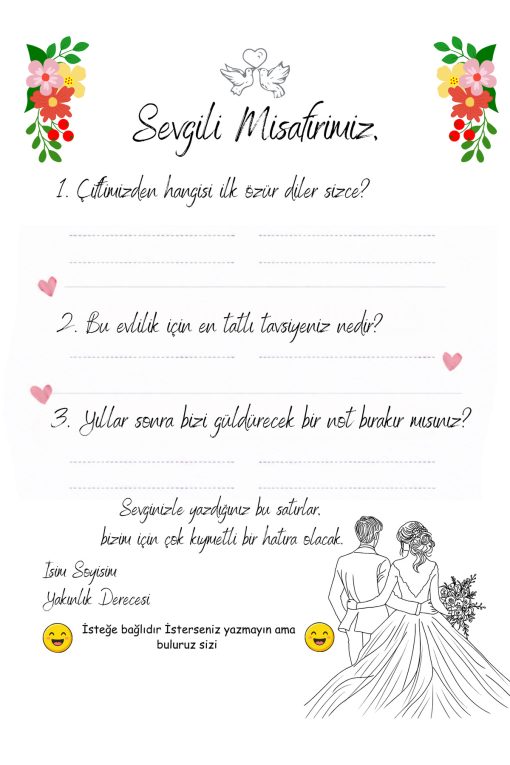 Sevgili Misafirimiz,
1. Çiftimizden hangisi ilk özür diler sizce?
2. Bu evlilik için en tatlı tavsiyeniz nedir?
3. Yıllar sonra bizi güldürecek bir not bırakır mısınız?
Sevginizle yazdığınız bu satırlar,
bizim için çok kıymetli bir hatıra olacak.
Isim Soyisim
Yakınlık Derecesi
İsteğe bağlıdır İsterseniz yazmayın ama
buluruz sizi